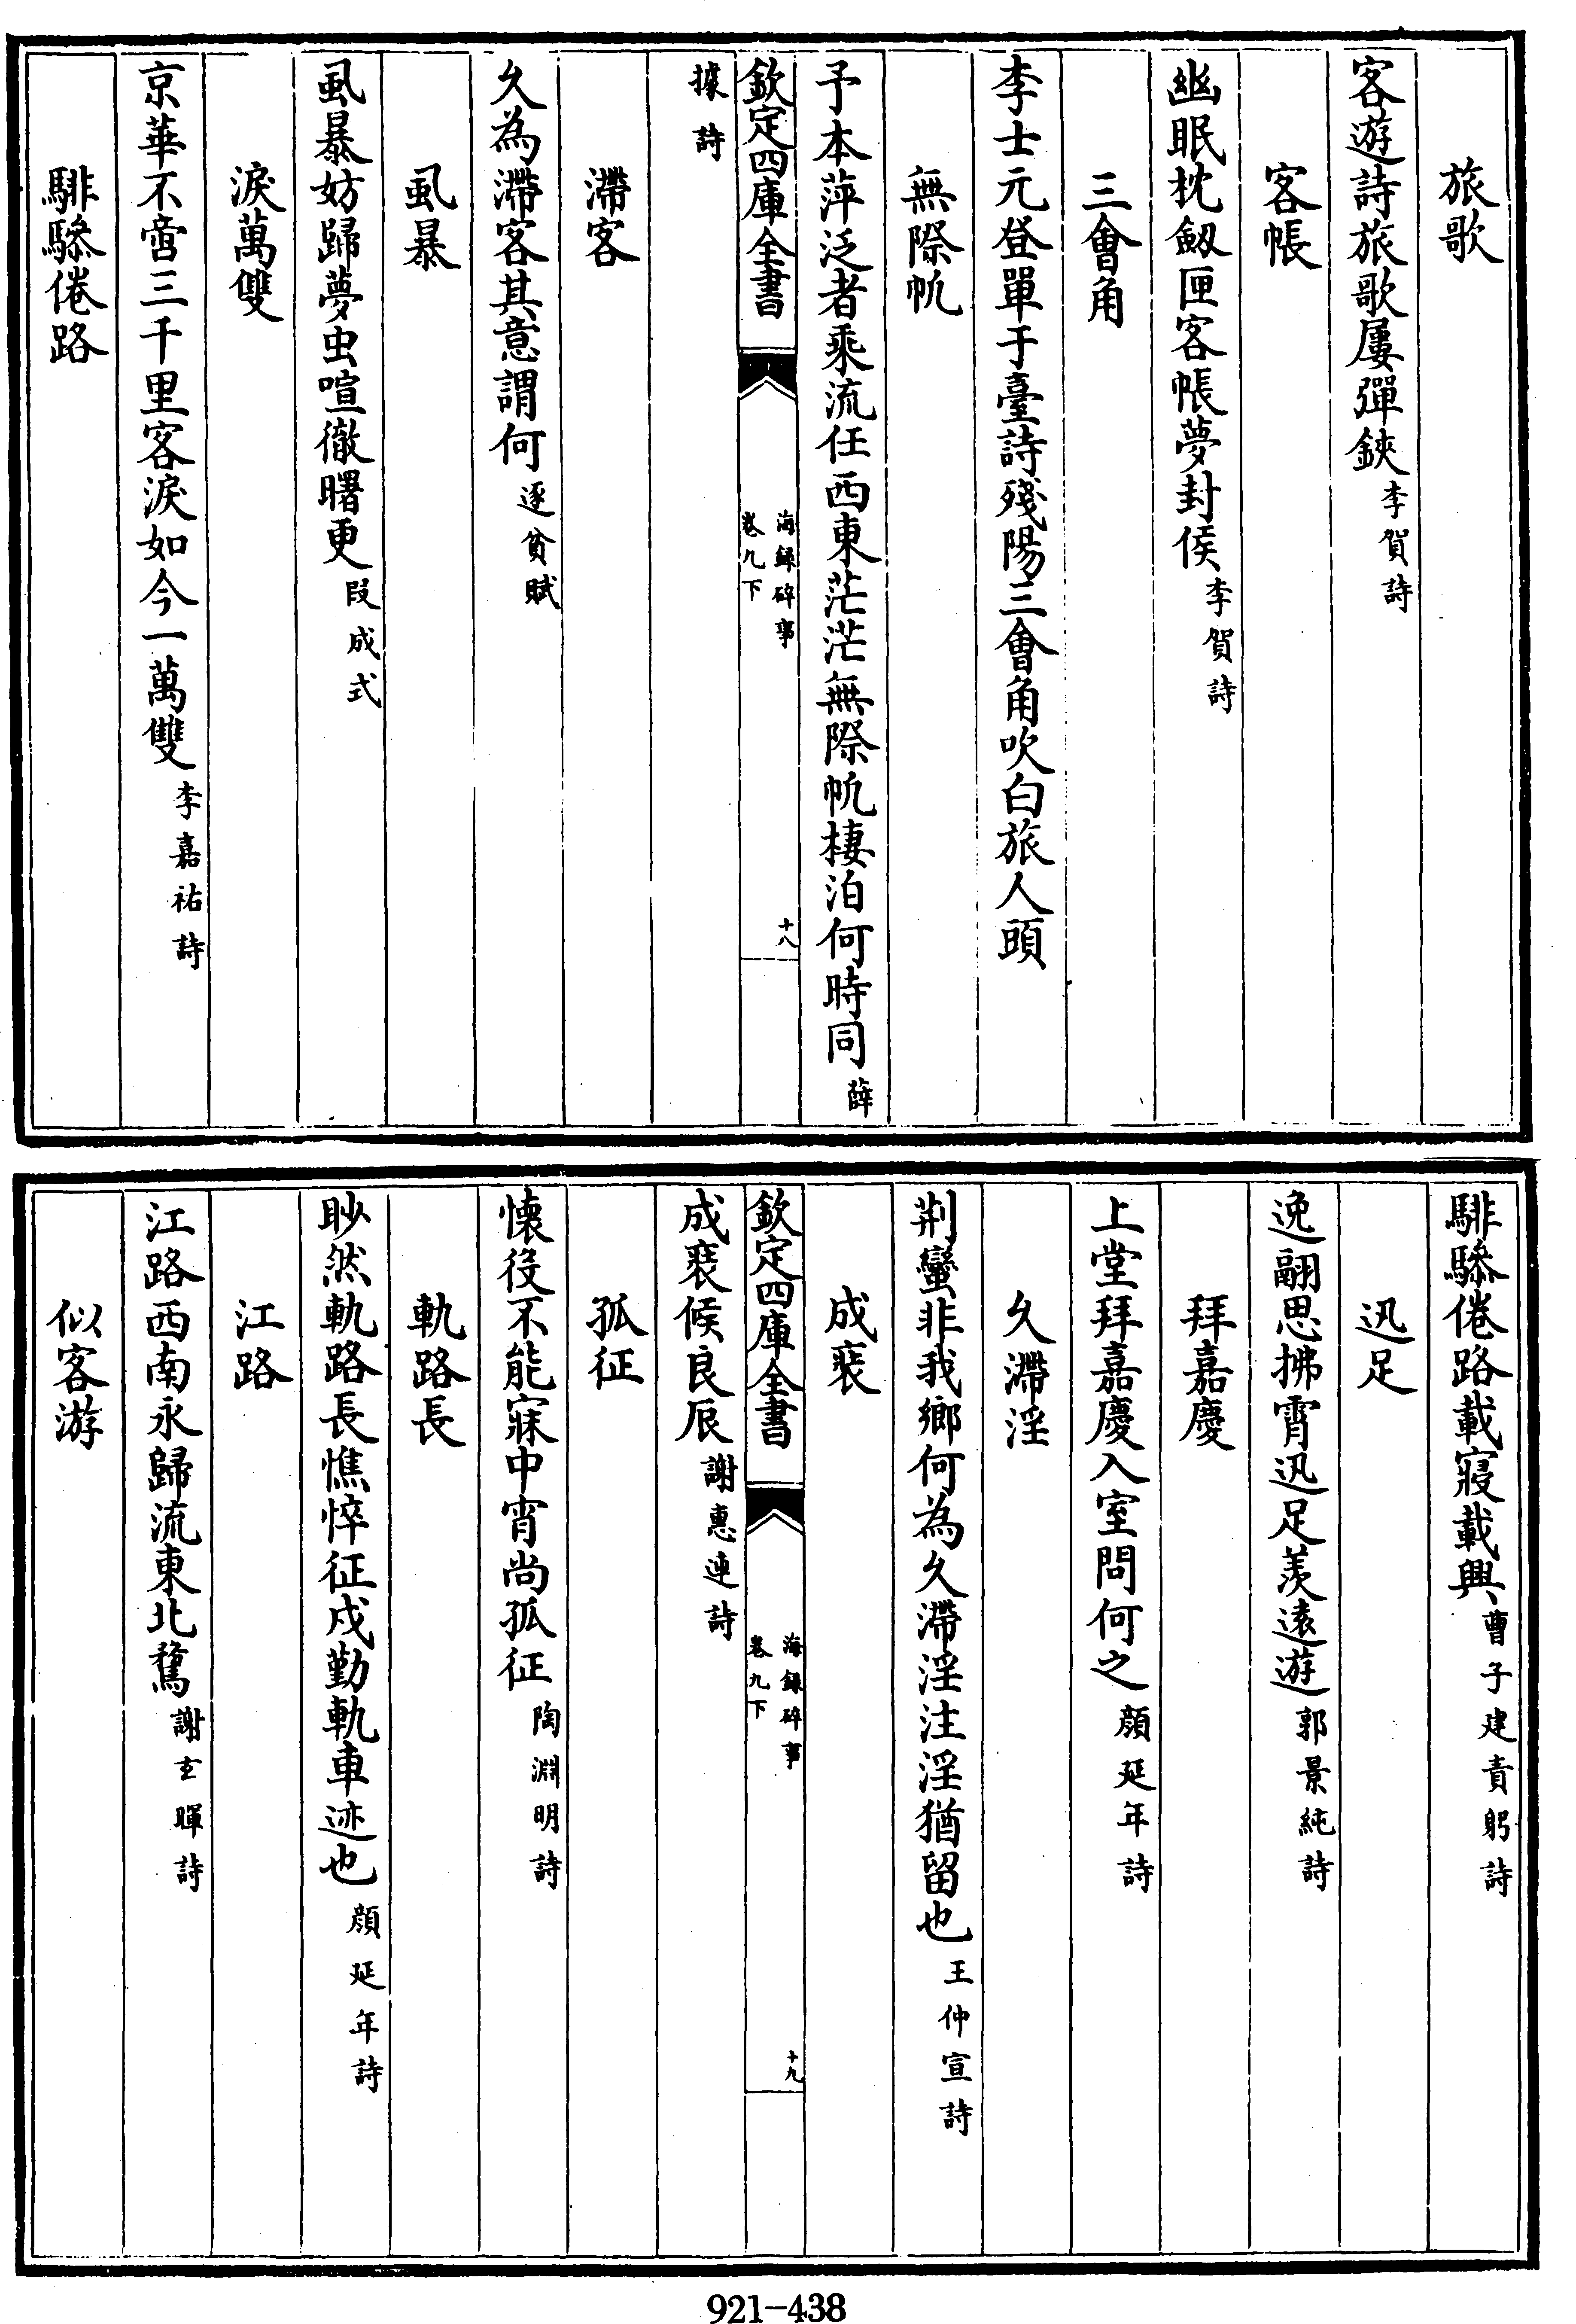 旅歌
客遊詩旅歌屢彈鋏李賀詩
客帳
幽眠枕劔匣客帳夢封侯李賀詩
三會角
李士元登單于臺詩殘陽三會角吹白旅人頭
無際帆
予本萍泛者乘流任西東茫茫無際帆棲泊何時同薛
欽定四庫全書
海録碎事
卷九下
十八
據詩
滯客
乆為滯客其意謂何逐貧賦
虱暴
虱暴妨歸夢虫喧徹曙更段成式
淚萬雙
京華不啻三千里客淚如今一萬雙李嘉祐詩
騑驂倦路
騑驂倦路載寢載興曹子建責躬詩
迅足
逸翮思拂霄迅足羨遠遊郭景純詩
拜嘉慶
上堂拜嘉慶入室問何之顔延年詩
乆滯淫
荆蠻非我鄉何為乆滯淫注淫猶留也王仲宣詩
成裴
欽定四庫全書
海録碎事
卷九下
十九
成裴候良辰謝惠連詩
孤征
懐役不能寐中宵尚孤征陶淵明詩
軌路長
眇然軌路長憔悴征戍勤軌車迹也顔延年詩
江路
江路西南永歸流東北騖謝玄暉詩
似客游
921-438